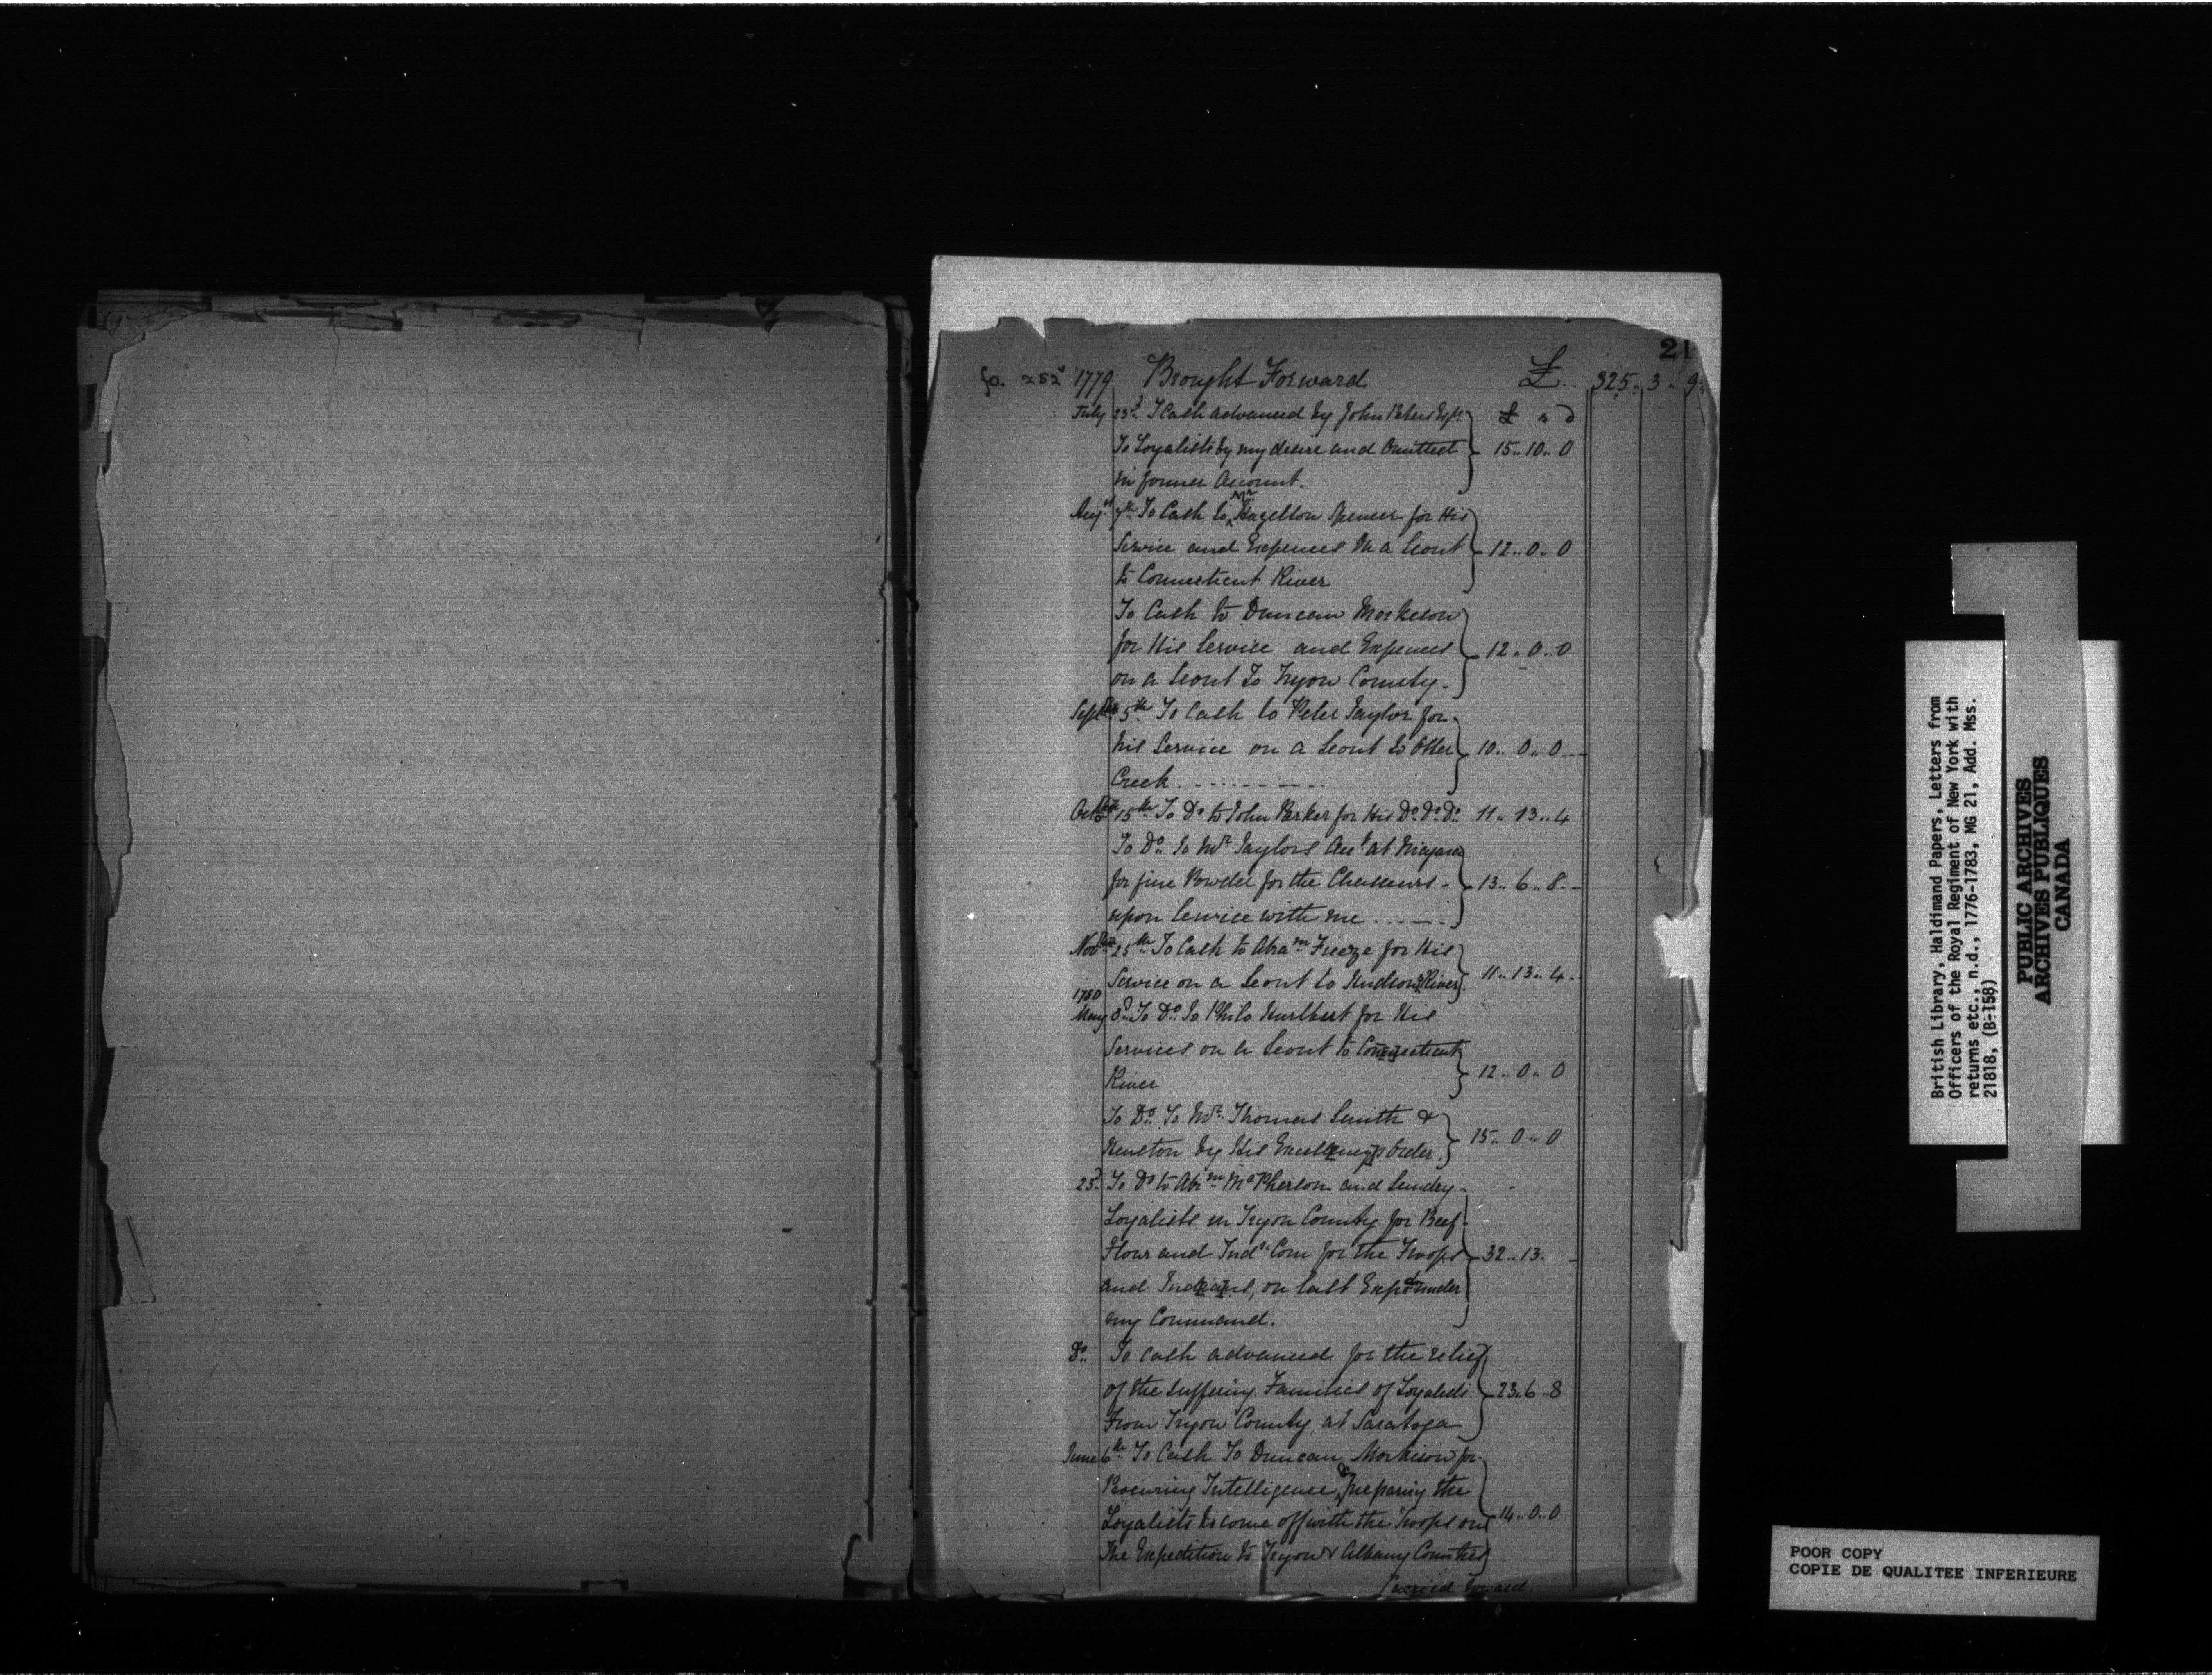 21
fo. 252 1779 Brought Forward £.. 325.. 3.. 9..
July 23d. T Cash advanced by John Peters Esqr. £ s d
To Loyalists by my desire and Omitted 15.. 10.. 0
in former Account.
Augst 7th To Cash to Mr. Hazelton Spencer for His
Service and Expences On a Scout 12.. 0.. 0
to Connecticut River
To Cash to Duncan
for His Service and Expences 12.. 0.. 0
on a Scout To Tryon County.
Septber 5th To Cash to Peter Taylor for
his Service on a Scout to Otter 10.. 0.. 0
Creek
Octber 15th To Do to John Parker for His Do. Do. Do. 11.. 13.. 4
To Do. To Mr. Taylors Acct. at Niagara
for fine Powder for the Chasseurs 13.. 6.. 8
upon Service with me
Novber 25th To Cash to Abram Freeze for His
Service on a Scout to Hudsons River. 11.. 13.. 4
1780
May 3d. To Do. To Philo Hurlburt for His
Services on a Scout to Connecticut
River 12.. 0.. 0
To Do. To Mr. Thomas Smith &
by His Excellency's Order. 15.. 0.. 0
23d. To Do to Abm. McPherson and Sundry
Loyalists in Tryon County for Beef
Flour and Indn. Corn for the Troops 32.. 13.
and Indians, on last Expdn under
my Command.
Do. To Cash advanced for the relief
of the suffering Families of Loyalists 23.. 6.. 8
From Tryon County at Saratoga
June 6th To Cash To Duncan Morkison for
Procuring Intelligence, & preparing the
Loyalists to come off with the Troops on 14.. 0.. 0
The Expedition to Tryon & Albany Counties
Carried Forward
British Library, Haldimand Papers, Letters from
Officers of the Royal Regiment of New York with
returns etc., n.d., 1776-1783, MG 21, Add. Mss.
21818, (B-158)
PUBLIC ARCHIVES
ARCHIVES PUBLIQUES
CANADA
POOR COPY
COPIE DE QUALITEE INFERIEURE